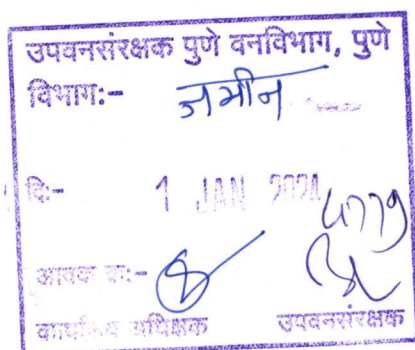 उपवनसंरक्षक पुणे वनविभाग, पुणे
विभाग:- जमीन
दि:- 1 JAN 2024
आवक क्र:-
कार्यालय अधिक्षक उपवनसंरक्षक